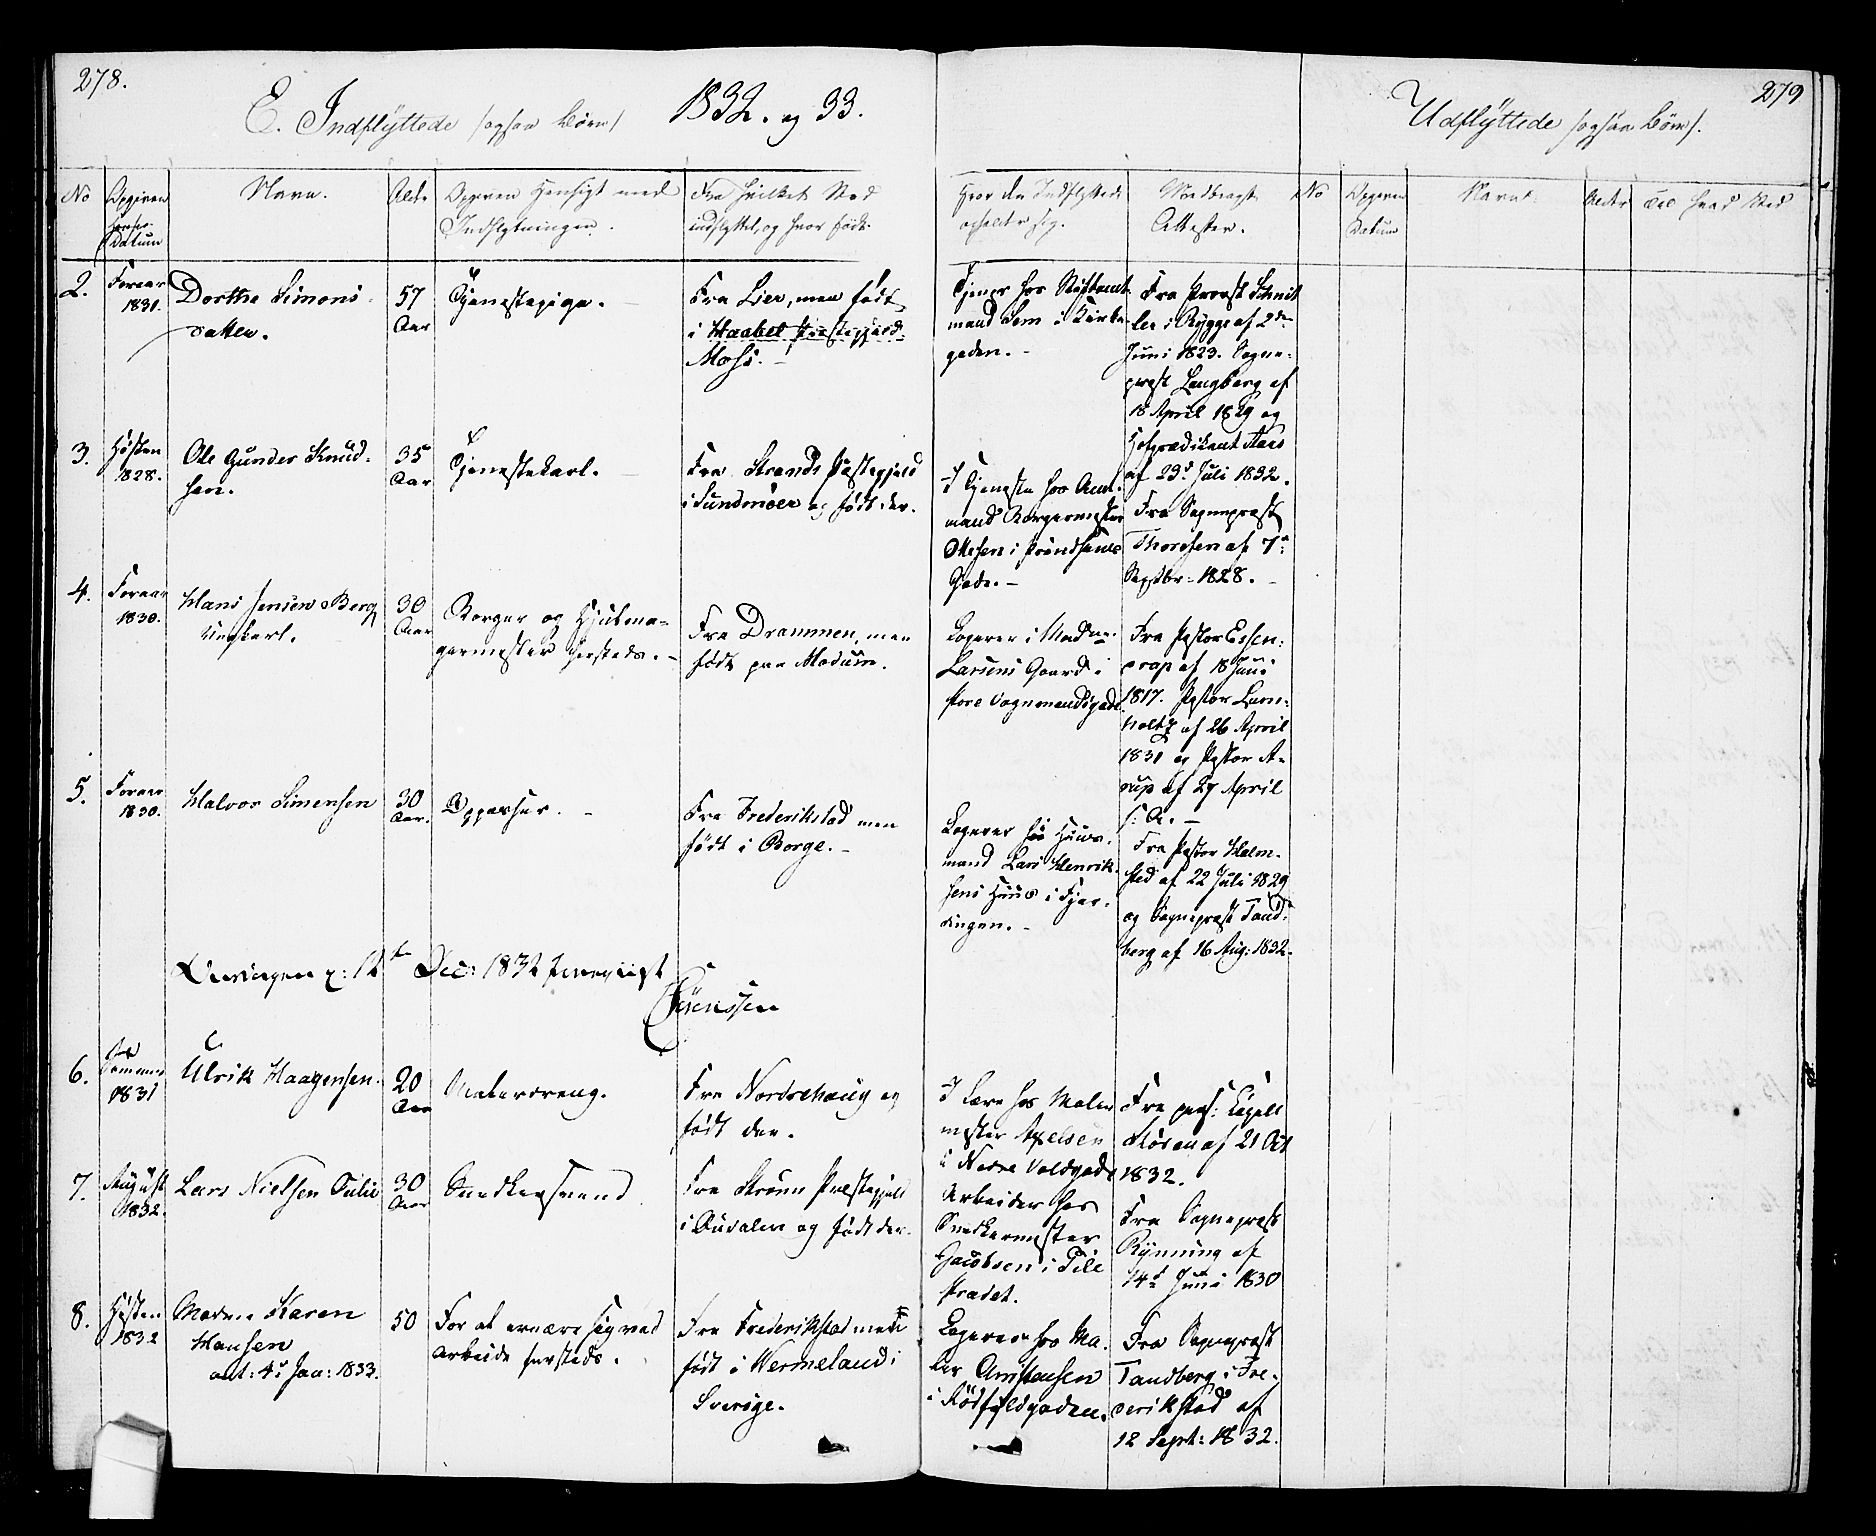 278.
E. Indflyttede /ogsaa Börn/ 1832. og 33.
No
Opgiven
Datum
Navn.
Alder
Opgiven Hensigt med
Indflytningen.
Fra hvilket Sted
indflyttet, og hvor födt.
Hvor den Indflyttede
opholder sig.
Medbragte
Attester.
2.
Foraar
1831.
Dorthe Simons
datter.
57
Aar
Tjenestepige.
Fra Lier, men födt
i Haabet Præstegjeld
Moss.
Tjener hos Stiftamt
mand Sem i Kirke
gaden.
Fra Provst Schnit
ler i Rygge af 2den
Juni 1823. Sogne-
præst Langberg af
18 April 1829 og
Hofprædikant Aars
af 23d Juli 1832.
3.
Hösten
1828.
Ole Gunder Knud-
sen.
35
Aar
Tjenestekarl.
Fra Strands Præstegjeld
i Sundmöer og födt der.
I Tjeneste hos
mand Borgermester
i Prindsens
Gade.
Fra Sognepræst
Thoresen af 7de
Septbr. 1828.
4.
Foraar
1830.
Hans Jensen Berg
Ungkarl.
30
Aar
Borger og Hjulma-
germester hersteds.
Fra Drammen, men
födt paa Modum.
Logerer i Madme.
Larsens Gaard i
store Vognmandsgade.
Fra Pastor Essen-
drop af 18 Juni
1817. Pastor Lum-
holtz af 26 April
1831 og Pastor A-
rup af 27 April
s: A.
5.
Foraar
1830.
Halvor Simensen
30
Aar.
Oppasser.
Fra Frederikstad men
födt i Borge.
Logerer hos Huus-
mand Lars Henrik-
sens Huus i Fjer-
dingen.
Fra Pastor Holm-
sted af 22 Juli 1829
og Sognepræst Tand-
berg af 16 Aug: 1832.
12te Dec: 1832
6.
Sommer
1831
Ulrik Haagensen.
20
Aar
Malerdreng.
Fra Nordrehaug og
födt der.
I Lære hos Maler
mester Axelsen
i Nedre Voldgade
Fra pers: Capell
af 21 Oct
1832.
7.
August
1832.
Lars Nielsen Tulie
30
Aar
Snedkersvend
Fra Præstegjeld
i Audalen og födt der.
Arbeider hos
Snedkermester
Jacobsen i Pile
strædet.
Fra Sognepræst
Rynning af
14de Juni 1830
8.
Hösten
1832
Madme Karen
Hansen
ant: 4de Jan: 1833.
50
For at ernære sig ved
Arbeide hersteds.
Fra Frederikstad men
födt i Wermeland i
Sverige.
Logerer hos Ma-
ler Christensen
i Rödfyldgaden.
Fra Sognepræst
Tandberg i Fre-
derikstad af
12 Sept: 1832.
279
Udflyttede /ogsaa Börn/.
No
Opgiven
Datum
Navn.
Alder
Til hvad Sted